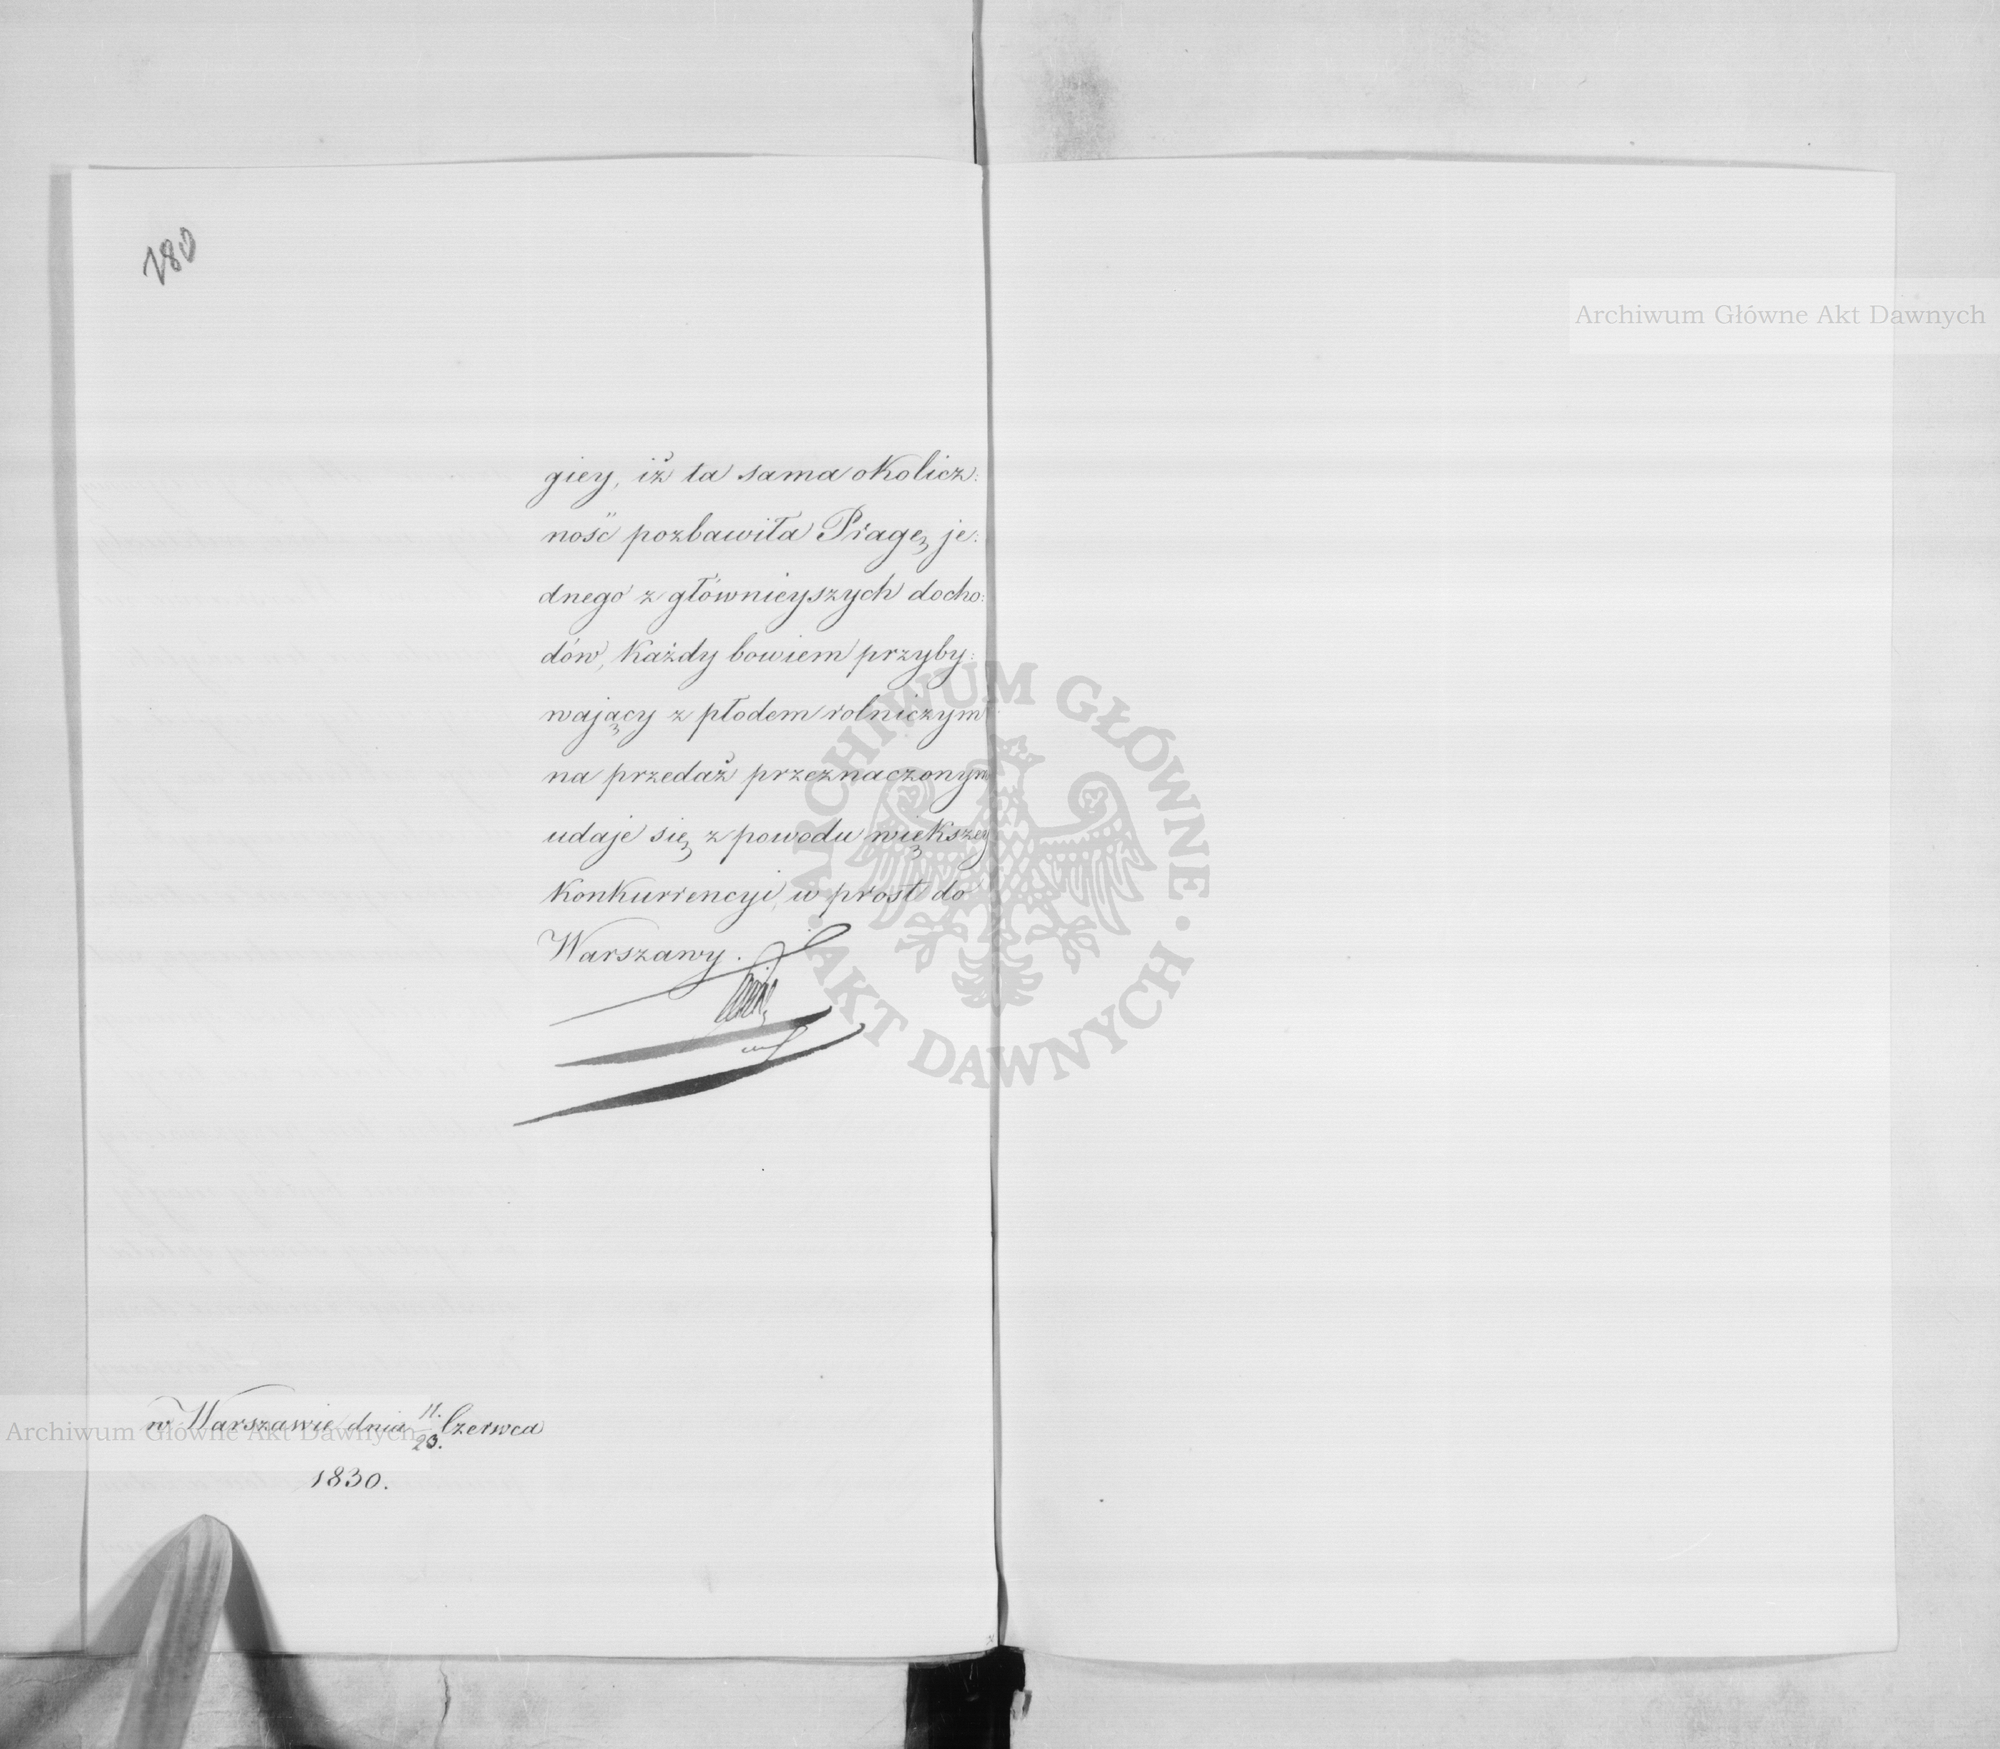 180
giey, iż ta sama okolicz:
ność pozbawiła Pragę je:
dnego z główniejszych docho:
dów, Każdy bowiem przyby:
wający z płodem rolniczym
na przedaż przeznaczonym
udaje się z powodu większey
Konkurrencyi, w prost do
Warszawy.
w Warszawie dnia 11./23. Czerwca
1830.
Archiwum Główne Akt Dawnych
Archiwum Główne Akt Dawnych
ARCHIWUM GŁÓWNE · AKT DAWNYCH ·